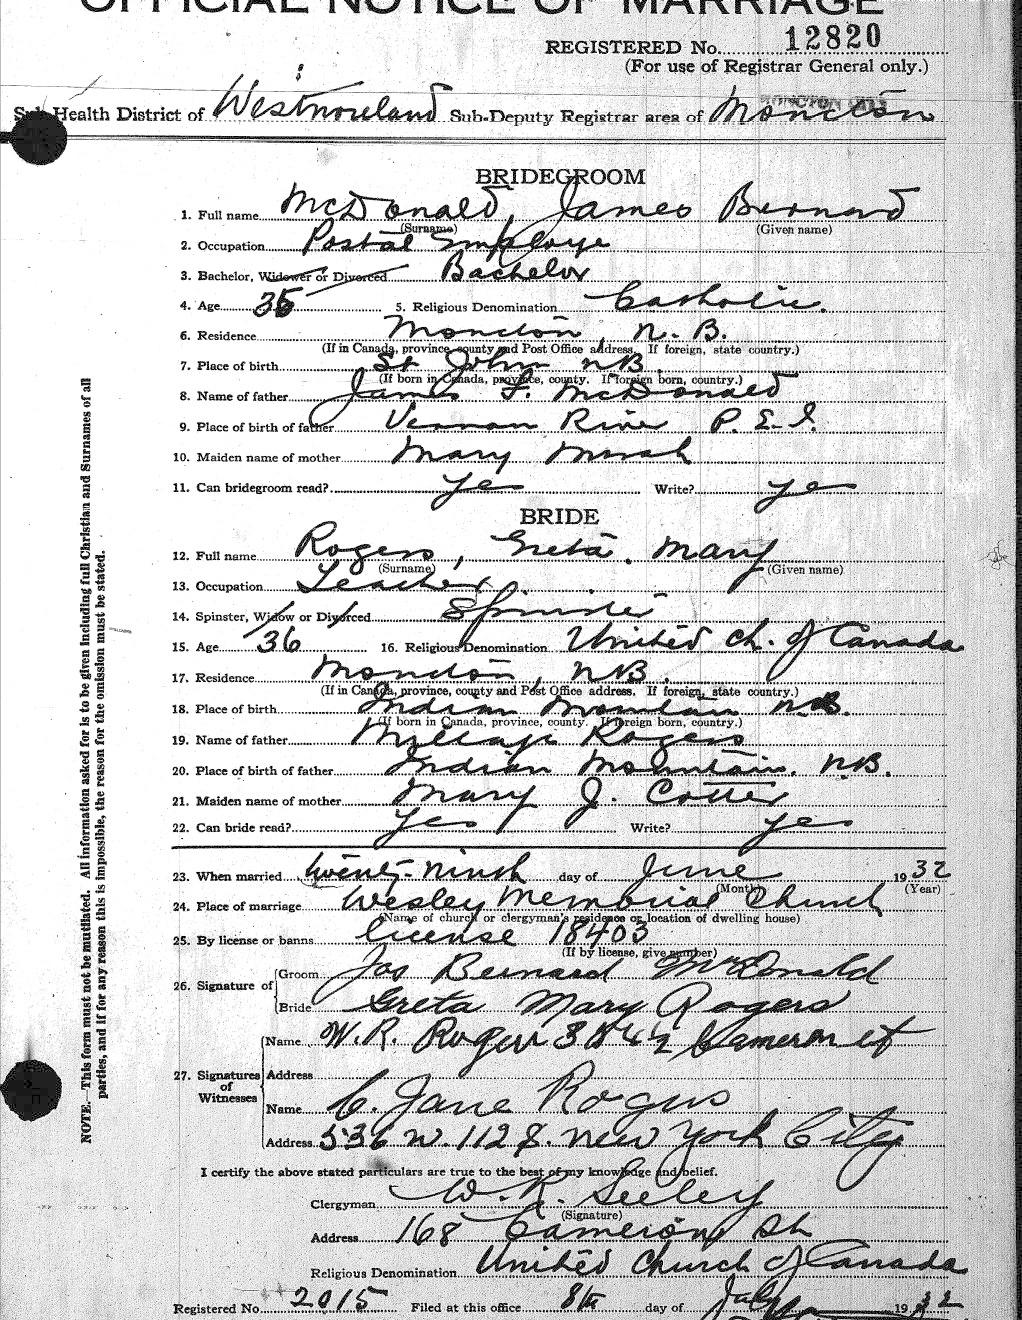 OFFICIAL NOTICE OF MARRIAGE
REGISTERED No. 12820
(For use of Registrar General only.)
Sub-Health District of Westmorland Sub-Deputy Registrar area of Moncton
BRIDEGROOM
1. Full name McDonald, James Bernard
(Surname) (Given name)
2. Occupation Postal Employe
3. Bachelor, Widower or Divorced Bachelor
4. Age 35 5. Religious Denomination Catholic.
6. Residence Moncton N. B.
(If in Canada, province, county and Post Office address. If foreign, state country.)
7. Place of birth St John NB
(If born in Canada, province, county. If foreign born, country.)
8. Name of father James F. McDonald
9. Place of birth of father Vernon River P. E. I.
10. Maiden name of mother Mary
11. Can bridegroom read? yes Write? yes
BRIDE
12. Full name Rogers, Greta. Mary
(Surname) (Given name)
13. Occupation Teacher
14. Spinster, Widow or Divorced Spinster
15. Age 36 16. Religious Denomination United Ch. of Canada
17. Residence Moncton, NB.
(If in Canada, province, county and Post Office address. If foreign, state country.)
18. Place of birth Indian Mountain N.B.
(If born in Canada, province, county. If foreign born, country.)
19. Name of father Rogers
20. Place of birth of father Indian Mountain. N.B.
21. Maiden name of mother Mary J. Cotter
22. Can bride read? Yes Write? yes
23. When married twenty-ninth day of June 1932
(Month) (Year)
24. Place of marriage Wesley Memorial Church
(Name of church or clergyman's residence or location of dwelling house)
25. By license or banns License 18403
(If by license, give number)
26. Signature of
Groom Jas Bernard McDonald
Bride Greta Mary Rogers
27. Signatures of Witnesses
Name W. R. Rogers Cameron St
Address
Name C. Jane Rogers
Address 536 W. 112 S. New York City
I certify the above stated particulars are true to the best of my knowledge and belief.
Clergyman W. R. Seeley
(Signature)
Address 168 Cameron St
Religious Denomination United Church of Canada
Registered No. 2015 Filed at this office 8th day of July 1932
NOTE.—This form must not be mutilated. All information asked for is to be given including full Christian and Surnames of all
parties, and if for any reason this is impossible, the reason for the omission must be stated.